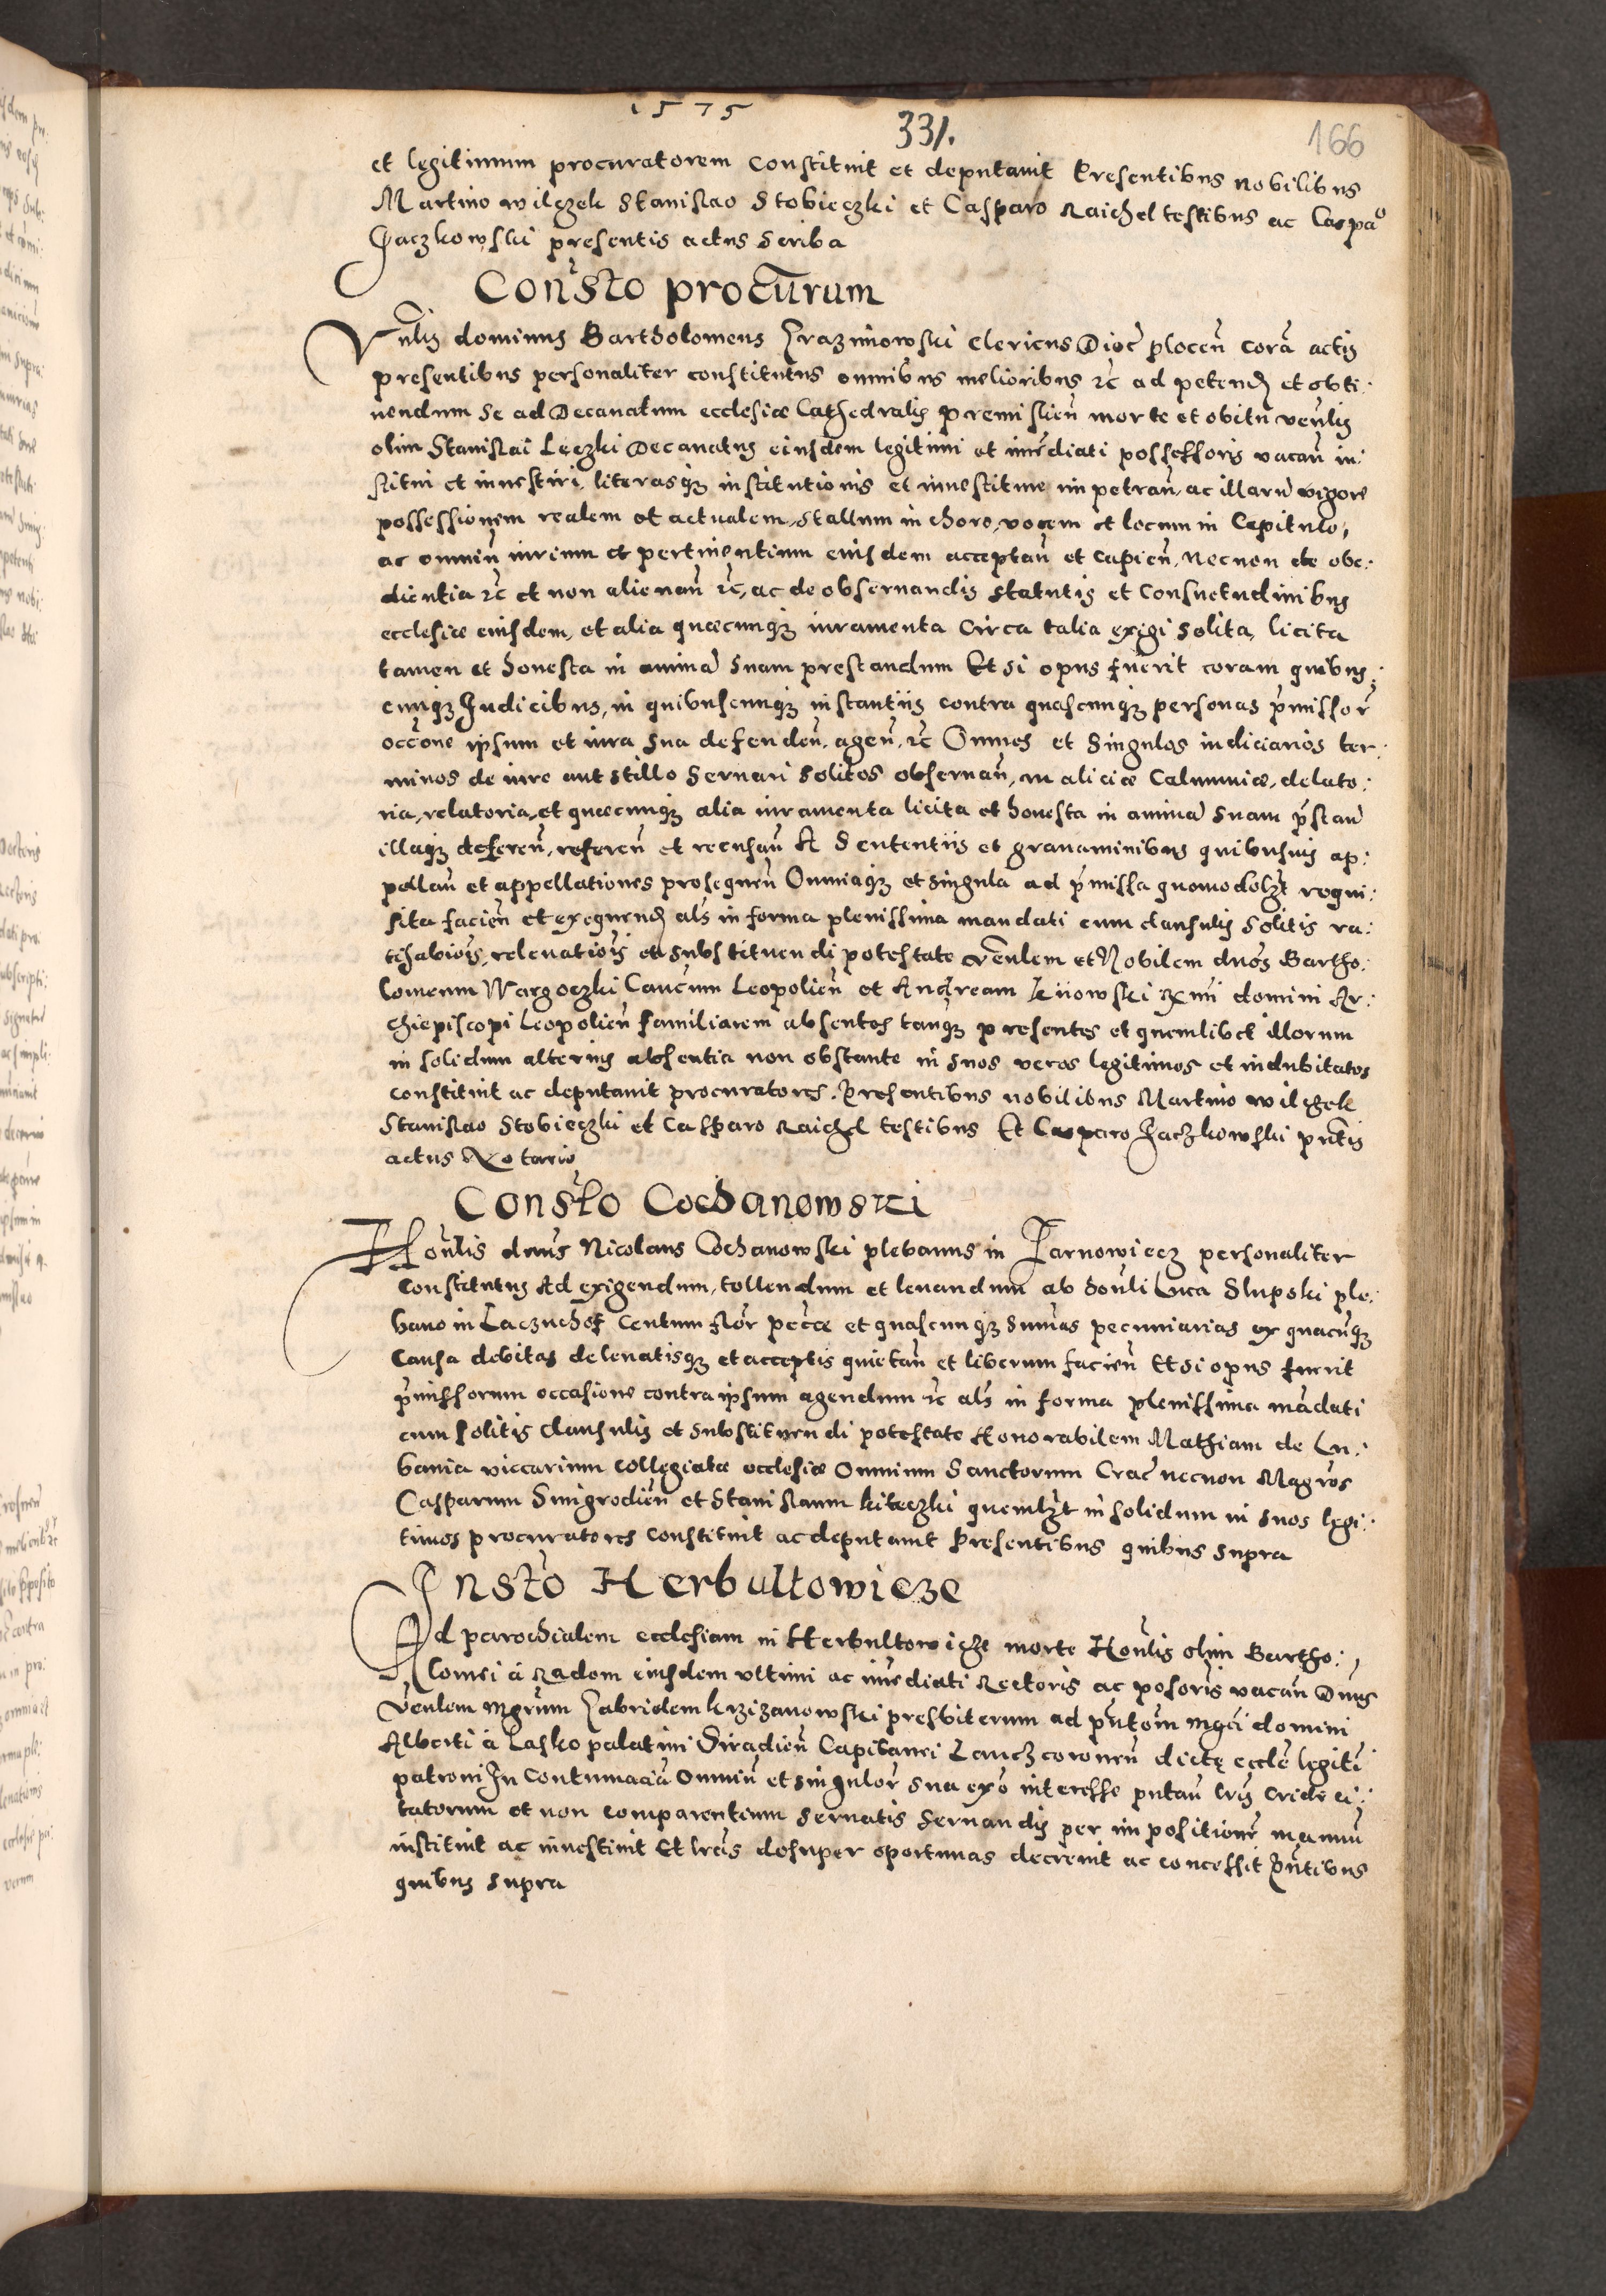 1575
331.
166
et legitimum procuratorem constituit et deputauit Presentibus nobilibus
Martino wilczek Stanislao Stobieczki et Casparo Raichel testibus ac Caspao
Jaczkowski presentis actus scriba
Consto procurum
Vnlis dominus Bartholomeus Grazimowski clericus Dioc plocen cora actis
presentibus personaliter constitutus omnibus melioribus etc ad petend et obti:
nendum se ad Decanatum ecclesiæ Cathedralis premislien morte et obitu venlis
olim Stanislai Leczki Decanatus eiusdem legitimi et immediati possessoris vacan in:
stitui et inuestiri, literasq institutionis et inuestiture impetran, ac illaru vigore
possessionem realem et actualem, stallum in choro, vocem et locum in Capitulo,
ac omniu iurium et pertinentium eiusdem acceptan et capien, necnon de obe:
dientia etc et non alienan etc, ac de obseruandis statutis et Consuetudinibus
ecclesiæ eiusdem, et alia quæcunq iuramenta circa talia exigi solita, licita
tamen et honesta in anima suam prestandum Et si opus fuerit coram quibus:
cunq Judicibus, in quibuscunq instantiis contra quascunq personas pmissor
occone ipsum et iura sua defenden, agen, etc Omnes et singulos iudiciarios ter:
minos de iure aut stillo seruari solitos obseruan, maliciæ Calumniæ, delato:
ria, relatoria, et quæcunq alia iuramenta licita et honesta in anima suam pstan
illaq deferen, referen et recusan A sententiis et grauaminibus quibusuis ap:
pellan et appellationes prosequen Omniaq et singula ad pmissa quomodolzt requi:
sita facien et exequend als in forma plenissima mandati cum clausulis solitis ra:
tihabiois, releuatiois et substituendi potestate venlem et Nobilem dnos Bartho:
lomeum Wargoczki Cancum Leopolien et Andream kiiowski Rmi domini Ar:
chiepiscopi Leopolien familiarem absentes tanq presentes et quemlibet illorum
in solidum alterius absentia non obstante in suos veros legitimos et indubitatos
constituit ac deputauit procuratores. Presentibus nobilibus Martino wilczek
Stanislao Stobieczki et Casparo Raichel testibus Et Casparo Jaczkowski pntis
actus Notario
Consto Cochanowski
Honlis dnus Nicolaus Cochanowski plebanus in Jarnowiecz personaliter
constitutus Ad exigendum, tollendum et leuandum ab honli Luca Slupski ple:
bano in Laczuchof Centum flor peccæ et quascunq sumas pecuniarias ex quacuq
causa debitas deleuatisq et acceptis quietan et liberum facien Et si opus fuerit
pmissorum occasione contra ipsum agendum etc als in forma plenissima madati
cum solitis clausulis et substituendi potestate Honorabilem Mathiam de Lu:
bania viccarium collegiatæ ecclesiæ Omnium Sanctorum Crac necnon Magros
Casparum Smigrodien et Stanislaum kiteczki quemlzt in solidum in suos legi:
timos procuratores constituit ac deputauit Presentibus quibus supra
Insto Herbultowicze
Ad parochialem ecclesiam in Herbultowicze morte Honlis olim Bartho:
lomei à Radom eiusdem vltimi ac immediati Rectoris ac posoris vacan Dnus
venlem mgrum Gabrielem krzizanowski presbiterum ad pntom mgci domini
Alberti à Lasko palatini Siradien Capitanei Lanczcoronen dictę eccle legiti
patroni In Contumacia Omniu et singulor sua exo interesse putan lris cride ci:
tatorum et non comparentium seruatis seruandis per impositione manuu
instituit ac inuestiuit Et lras desuper oportunas decreuit ac concessit pntibus
quibus supra